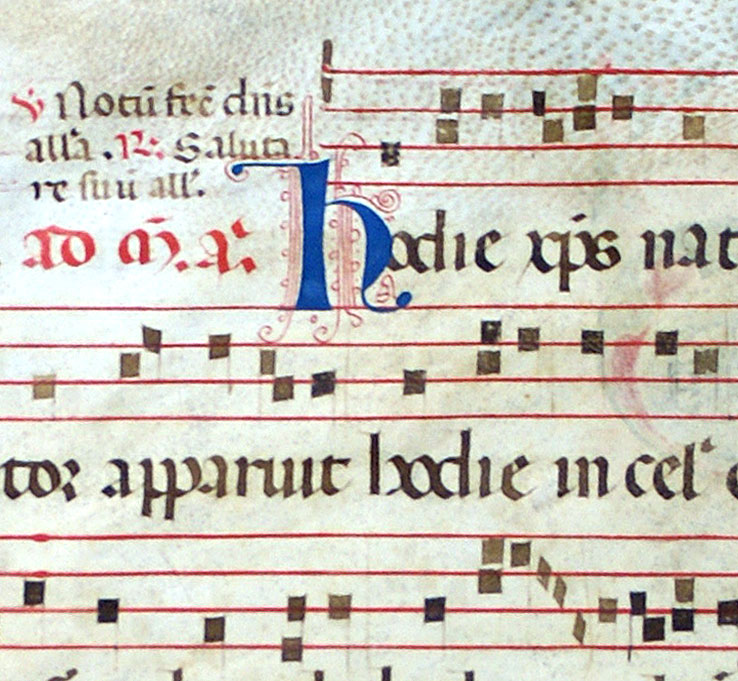 ℣ Notū fec̄ dn̄s
all'a . ℟. Saluta
re suū all'.
ad M̄. A'. Hodie xp̄s nat
tor apparuit hodie in cel'